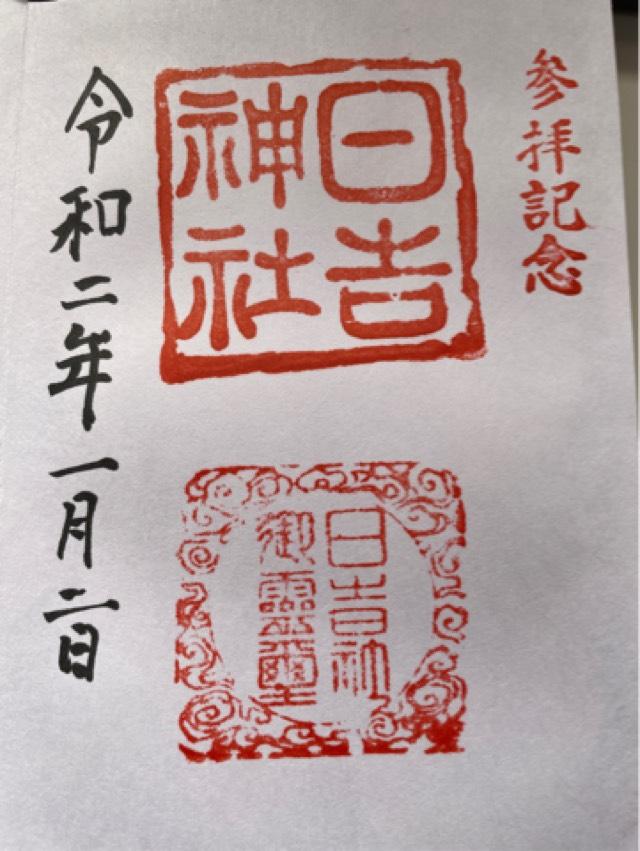 参拝記念
日吉
神社
日吉社
御霊璽
令和二年一月二日